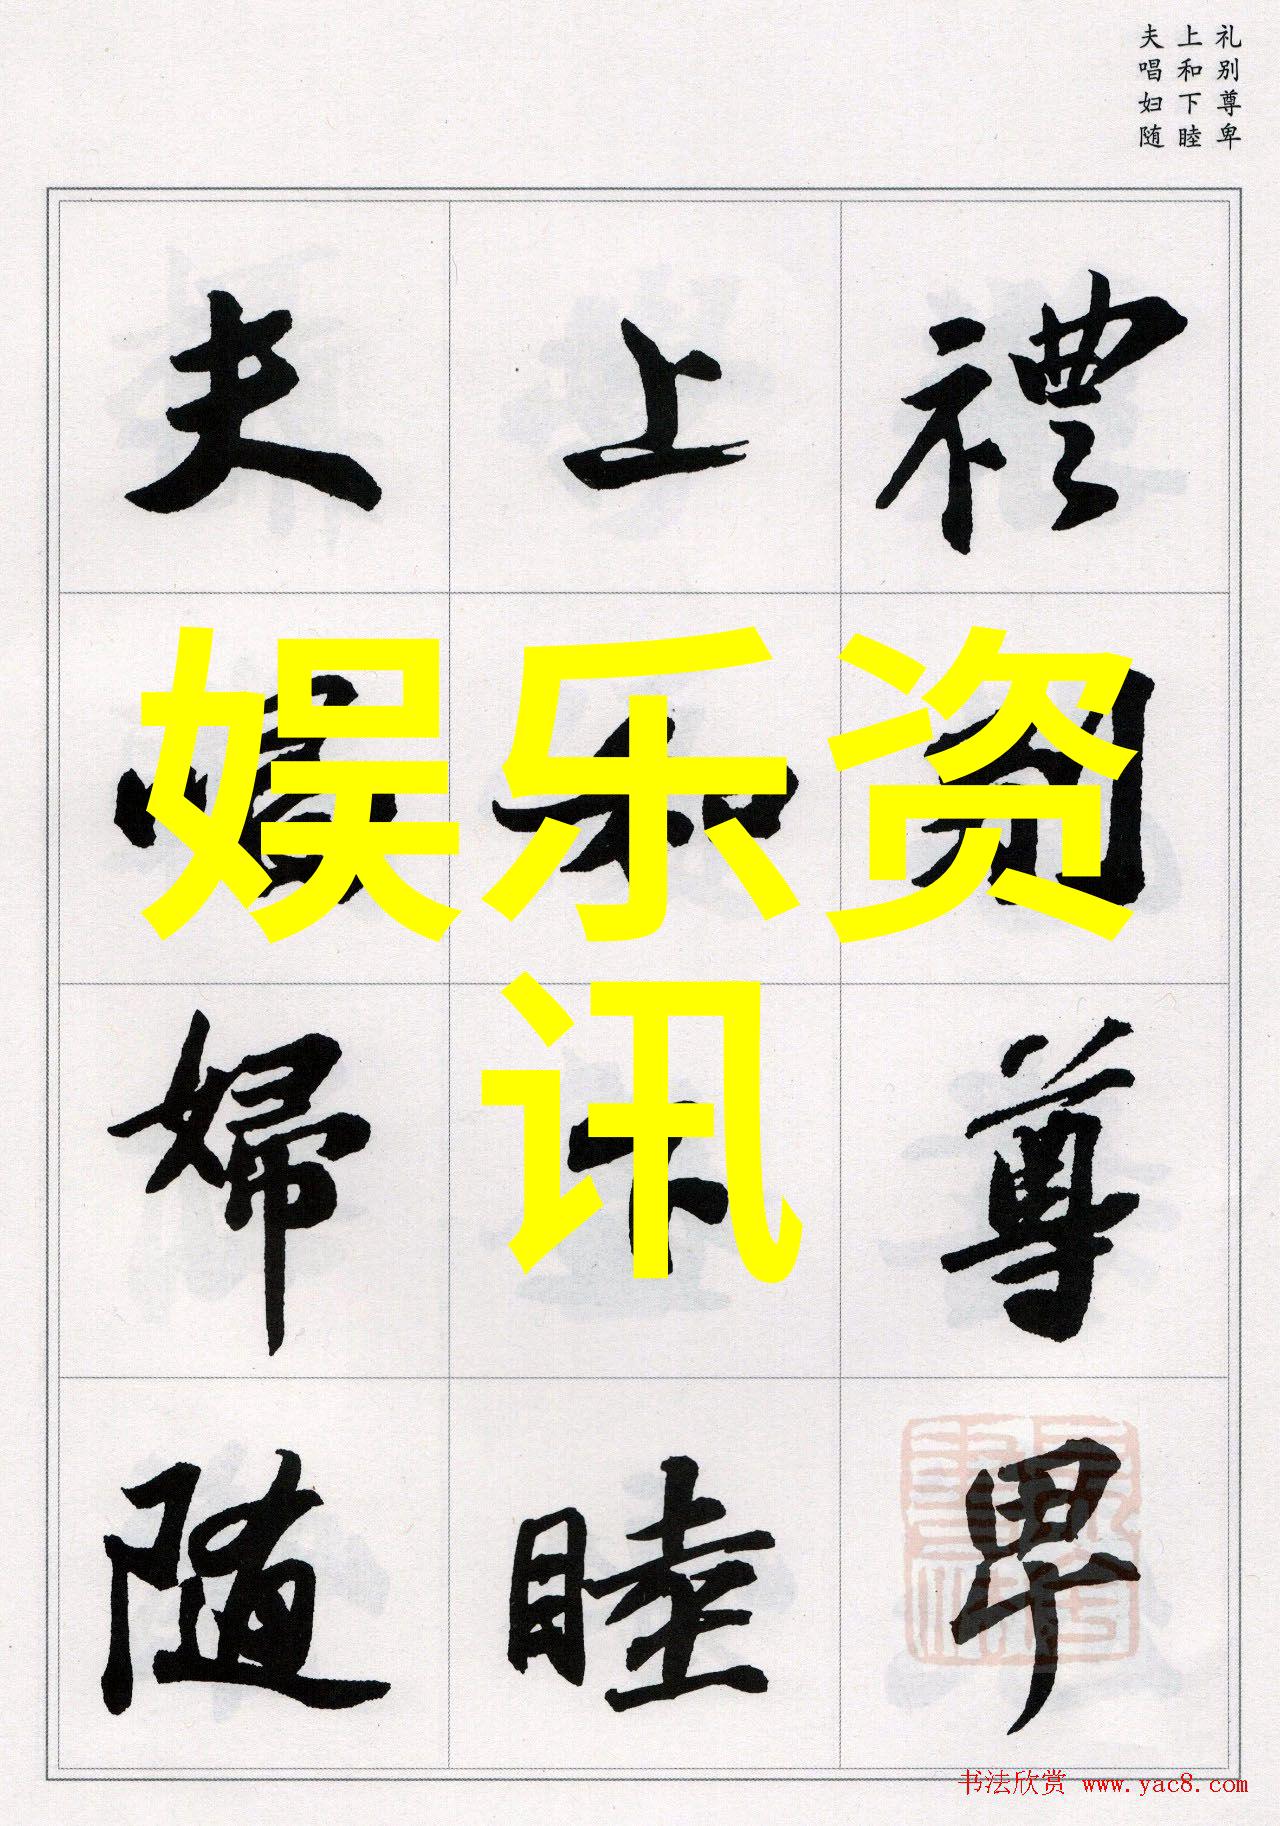 礼别尊卑
上和下睦
夫唱妇随
禮别尊卑
上和下睦
夫唱婦随
娱乐资
讯
书法欣赏 www.yac8.com